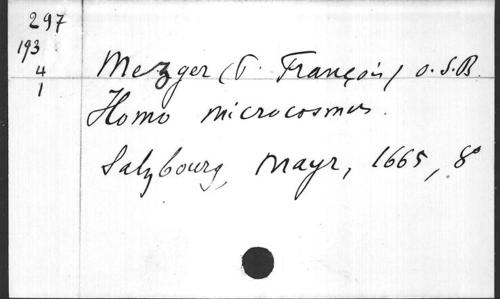 297
193
4
1
Mezger (P. François) O.S.B.
Homo microcosmus.
Salzbourg, Mayr, 1665, 8°